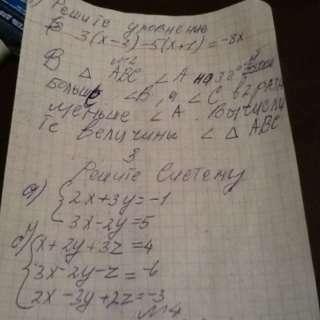 Решите уравнение
3(x-2)-5(x+1)=-8x
№2
В △ ABC ∠A на 32°
больше ∠B, а ∠C в 2 раза
меньше ∠A. Вычисли
те величины ∠ △ ABC
3
Решите систему
а) {2x+3y=-1
3x-2y=5
б) {x+2y+3z=4
3x-2y-z=-6
2x-3y+2z=-3
№4